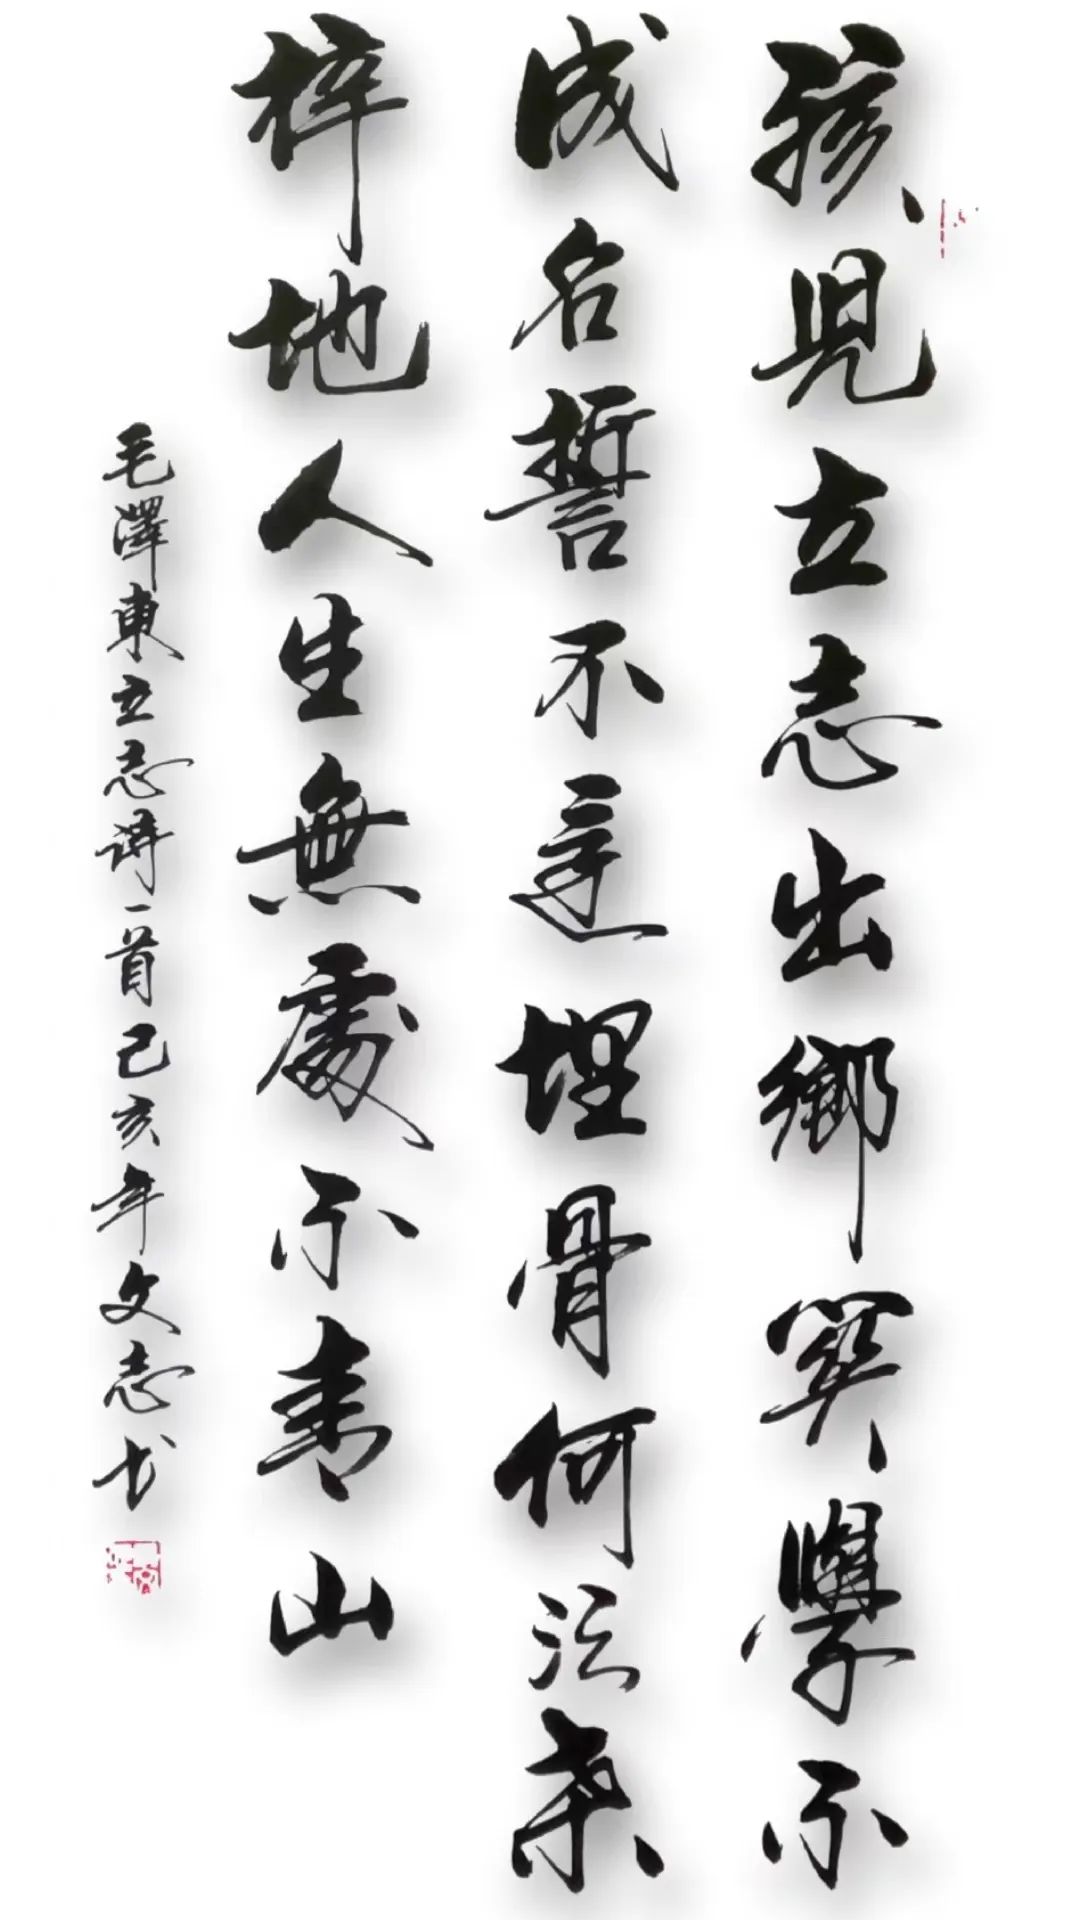 孩兒立志出鄉關學不
成名誓不還埋骨何須桑
梓地人生無處不青山
毛澤東立志詩一首己亥年文志书